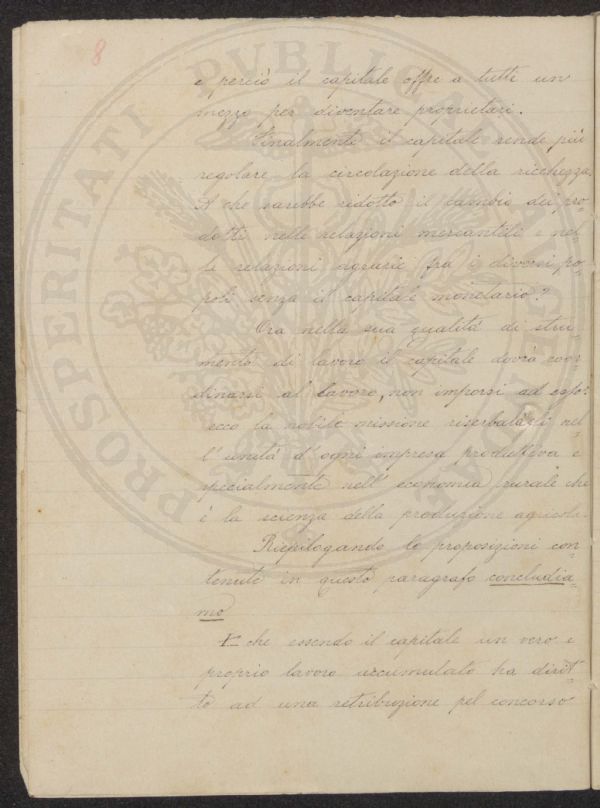 8
e perciò il capitale offre a tutti un
mezzo per diventare proprietari.
Finalmente il capitale rende più
regolare la circolazione della ricchezza.
A che sarebbe ridotto il cambio dei pro-
dotti nelle relazioni mercantili e nel-
le relazioni agrarie fra i diversi po-
poli senza il capitale monetario?
Ora nella sua qualità di stru-
mento di lavoro il capitale dovrà coor-
dinarsi al lavoro, non imporsi ad esso:
ecco la nobile missione riserbatagli nel-
l'unità d'ogni impresa produttiva e
specialmente nell'economia rurale che
è la scienza della produzione agricola.
Riepilogando le proposizioni con-
tenute in questo paragrafo concludia-
mo
1º che essendo il capitale un vero e
proprio lavoro accumulato ha dirit-
to ad una retribuzione pel concorso
PROSPERITATI PVBLICAE AVGENDAE